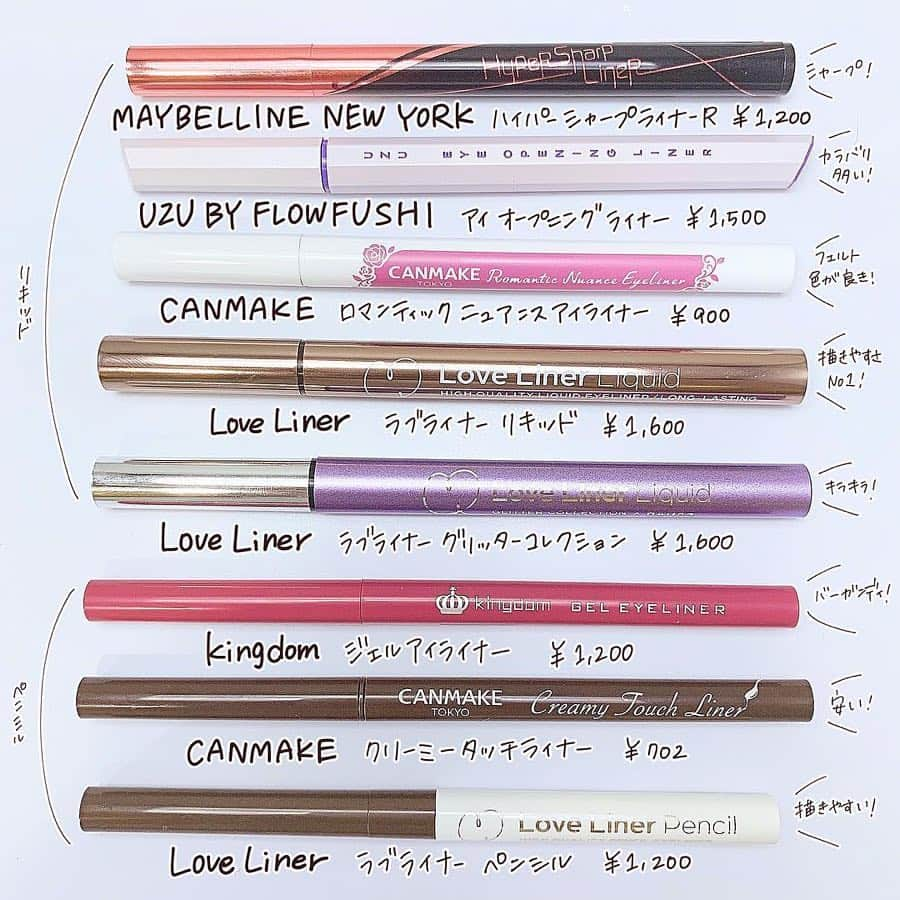 HYPER SHARP LINER
シャープ!
MAYBELLINE NEW YORK ハイパーシャープライナーR ¥1,200
UZU EYE OPENING LINER
カラバリ
多い!
UZU BY FLOWFUSHI アイオープニングライナー ¥1,500
CANMAKE Romantic Nuance Eyeliner
TOKYO
フェルト
色が良き!
CANMAKE ロマンティックニュアンスアイライナー ¥900
リキッド
Love Liner Liquid
HIGH QUALITY LIQUID EYELINER / LONG-LASTING
描きやすさ
No1!
Love Liner ラブライナー リキッド ¥1,600
Love Liner Liquid
キラキラ!
Love Liner ラブライナー グリッターコレクション ¥1,600
kingdom GEL EYELINER
バーガンディ!
kingdom ジェルアイライナー ¥1,200
CANMAKE Creamy Touch Liner
TOKYO
安い!
CANMAKE クリーミータッチライナー ¥702
Love Liner Pencil
描きやすい!
Love Liner ラブライナー ペンシル ¥1,200